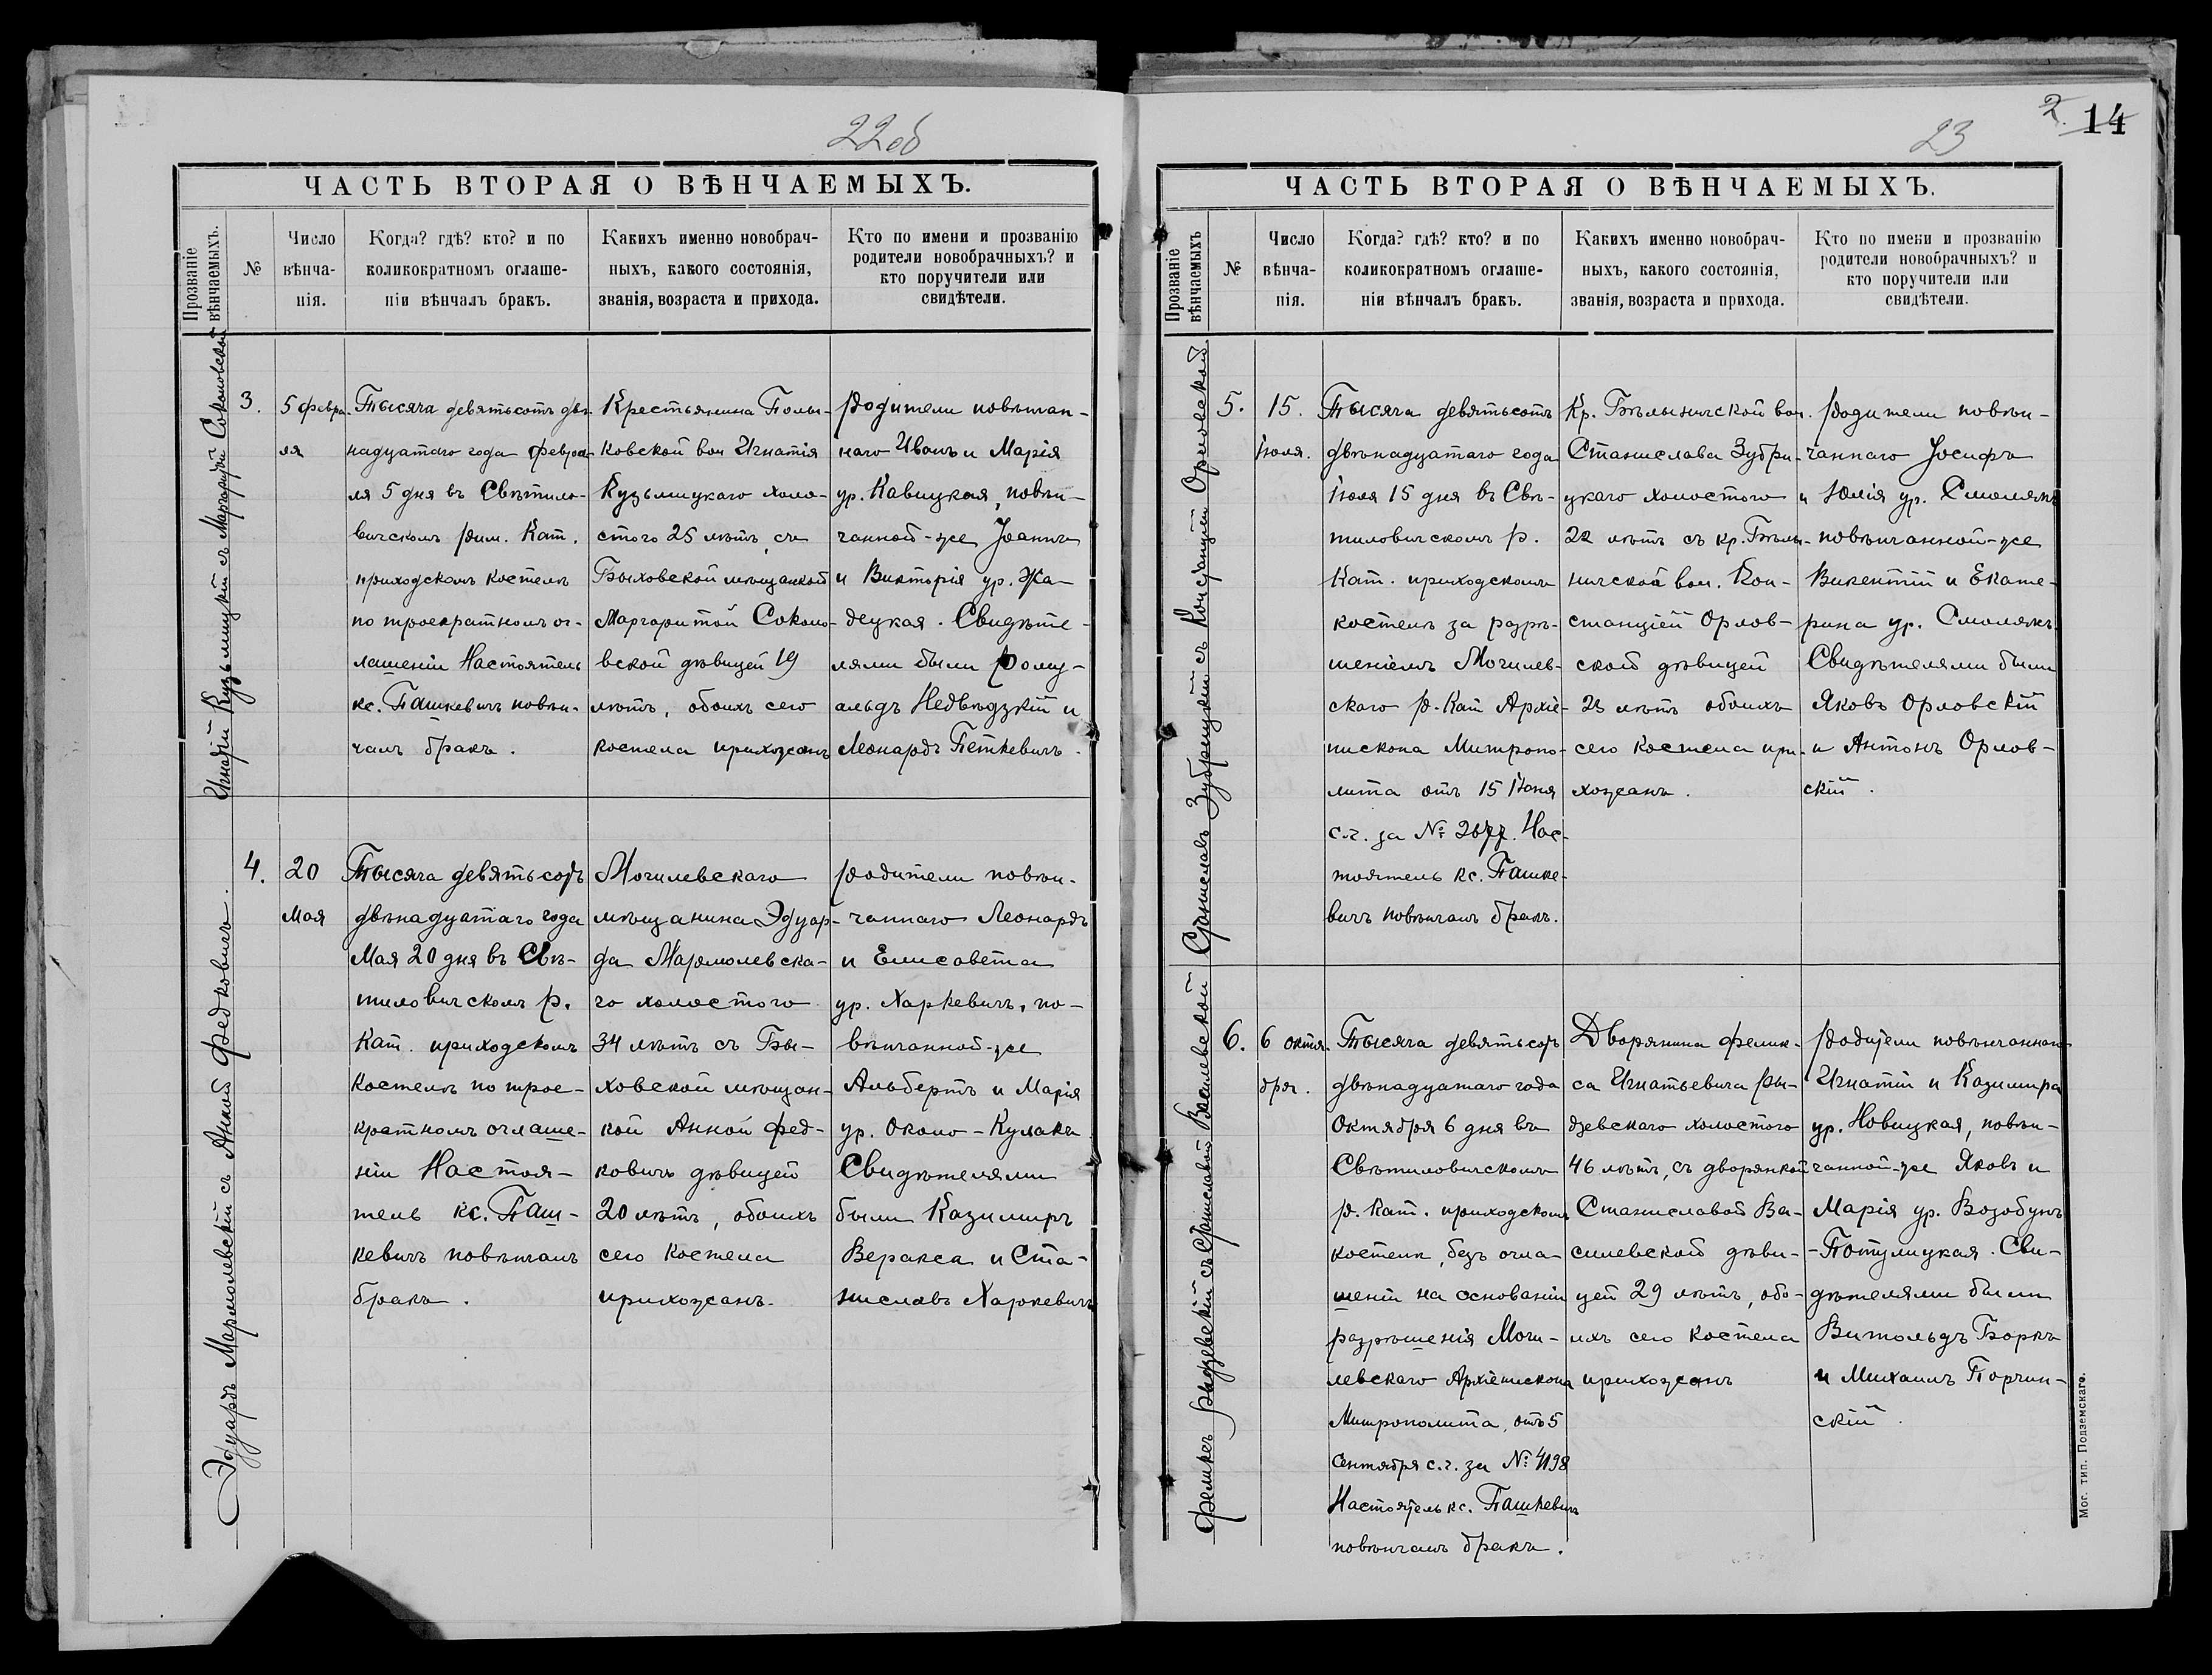 22 об
ЧАСТЬ ВТОРАЯ О ВѢНЧАЕМЫХЪ.
Прозваніе вѣнчаемыхъ.
№
Число
вѣнча-
нія.
Когда? гдѣ? кто? и по
коликократномъ оглаше-
ніи вѣнчалъ бракъ.
Какихъ именно новобрач-
ныхъ, какого состоянія,
званія, возраста и прихода.
Кто по имени и прозванію
родители новобрачныхъ? и
кто поручители или
свидѣтели.
Игнатій Кузьмицкій съ Маргаритой Соколовской
3.
5 Февра-
ля
Тысяча девятьсотъ двѣ-
надцатаго года Февра-
ля 5 дня въ Свѣтило-
вичскомъ рим. Кат.
приходскомъ костелѣ
по троекратномъ ог-
лашеніи Настоятель
кс. Пашкевичъ повѣн-
чалъ бракъ.
Крестьянина Полы-
ковской вол Игнатія
Кузьмицкаго холо-
стого 25 лѣтъ, съ
Быховской мѣщанкой
Маргаритой Соколо-
вской дѣвицей 19
лѣтъ, обоихъ сего
костела прихожанъ
Родители повѣнчан-
наго Иванъ и Марія
ур. Кавицкая, повѣн-
чанной-же Іоаннъ
и Викторія ур. Жа-
децкая. Свидѣте-
лями были Рому-
альдъ Недвѣдзкій и
Леонардъ Петкевичъ.
Эдуардъ Мармолевскій съ Анной Федковичъ.
4.
20
Мая
Тысяча девятьсотъ
двѣнадцатаго года
Мая 20 дня въ Свѣ-
тиловичскомъ р.
Кат. приходскомъ
костелѣ по трое-
кратномъ оглаше-
ніи Настоя-
тель кс. Паш-
кевичъ повѣнчалъ
бракъ.
Могилевскаго
мѣщанина Эдуар-
да Мармолевска-
го холостого
34 лѣтъ съ Бы-
ховской мѣщан-
кой Анной Фед-
ковичъ дѣвицей
20 лѣтъ, обоихъ
сего костела
прихожанъ.
Родители повѣн-
чаннаго Леонардъ
и Елисавета
ур. Харкевичъ, по-
вѣнчанной-же
Альбертъ и Марія
ур. Около-Кулака
Свидѣтелями
были Казимиръ
Веракса и Ста-
ниславъ Харкевичъ
23
2
14
ЧАСТЬ ВТОРАЯ О ВѢНЧАЕМЫХЪ.
Прозваніе вѣнчаемыхъ
№
Число
вѣнча-
нія.
Когда? гдѣ? кто? и по
коликократномъ оглаше-
ніи вѣнчалъ бракъ.
Какихъ именно новобрач-
ныхъ, какого состоянія,
званія, возраста и прихода.
Кто по имени и прозванію
родители новобрачныхъ? и
кто поручители или
свидѣтели.
Станиславъ Зубрицкій съ Констанціей Орловской
5.
15.
Іюля.
Тысяча девятьсотъ
двѣнадцатаго года
Іюля 15 дня въ Свѣ-
тиловичскомъ р.
Кат. приходскомъ
костелѣ за разрѣ-
шеніемъ Могилев-
скаго р. Кат Архіе-
пископа Митропо-
лита отъ 15 Іюня
с.г. за № 2677. Нас-
тоятель кс. Пашке-
вичъ повѣнчалъ бракъ.
Кр. Бѣлыничской вол.
Станислава Зубри-
цкаго холостого
22 лѣтъ съ кр. Бѣлы-
ничской вол. Кон-
станціей Орлов-
ской дѣвицей
23 лѣтъ обоихъ
сего костела при-
хожанъ.
Родители повѣн-
чаннаго Іосифъ
и Юлія ур. Смолякъ
повѣнчанной-же
Викентій и Екате-
рина ур. Смолякъ.
Свидѣтелями были
Яковъ Орловскій
и Антонъ Орлов-
скій.
Феликсъ Рыдзевскій съ Станиславой Василевской
6.
6 октя-
бря.
Тысяча девятьсотъ
двѣнадцатаго года
Октября 6 дня въ
Свѣтиловичскомъ
р. Кат. приходскомъ
костелѣ, безъ огла-
шеній на основаніи
разрѣшенія Моги-
левскаго Архіепископа
Митрополита, отъ 5
Сентября с.г. за № 4198
Настоятель кс. Пашкевичъ
повѣнчалъ бракъ.
Дворянина Фелик-
са Игнатьевича Ры-
дзевскаго холостого
46 лѣтъ, съ дворянкой
Станиславой Ва-
силевской дѣви-
цей 29 лѣтъ, обо-
ихъ сего костела
прихожанъ
Родители повѣнчаннаго
Игнатій и Казимира
ур. Новицкая, повѣн-
чанной-же Яковъ и
Марія ур. Возобунъ
-Потулицкая. Сви-
дѣтелями были
Витольдъ Боркъ
и Михаилъ Порчин-
скій.
Мог. тип. Подземскаго.